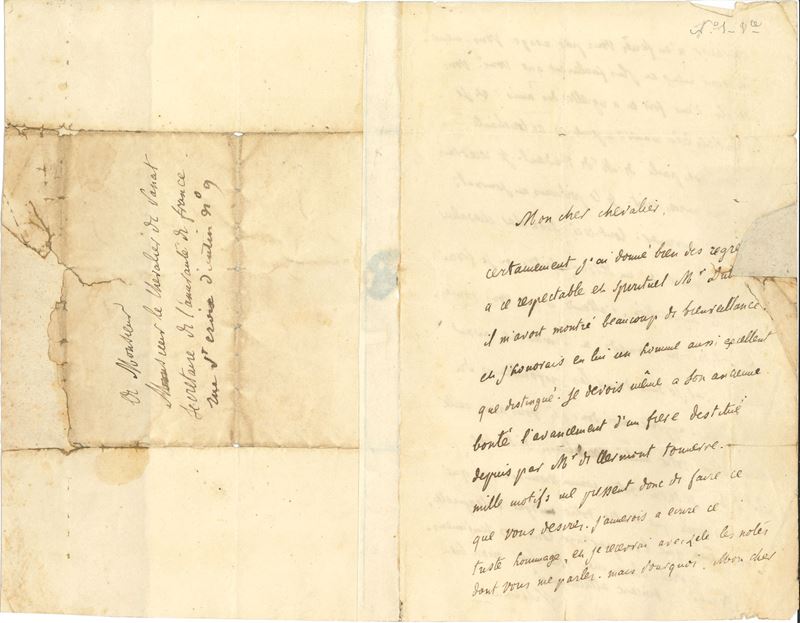 A Monsieur
Monsieur le Chevalier de Panat
Secretaire de l'amirauté de france
rue St croix d'antin no 9
No 1
Mon cher chevalier,
certainement j'ai donné bien des regre
a ce respectable et spirituel Mr Dub
il m'avoit montré beaucoup de bienveillance.
et j'honorais en lui un homme aussi excellent
que distingué. je devois même a son ancienne
bonté l'avancement d'un frere destitué
depuis par Mr de Clermont tonnerre.
mille motifs me pressent donc de faire ce
que vous desirez. j'aimerois a ecrire ce
triste hommage, et je recevrai avec zele les notes
dont vous me parlez. mais pourquoi, Mon cher